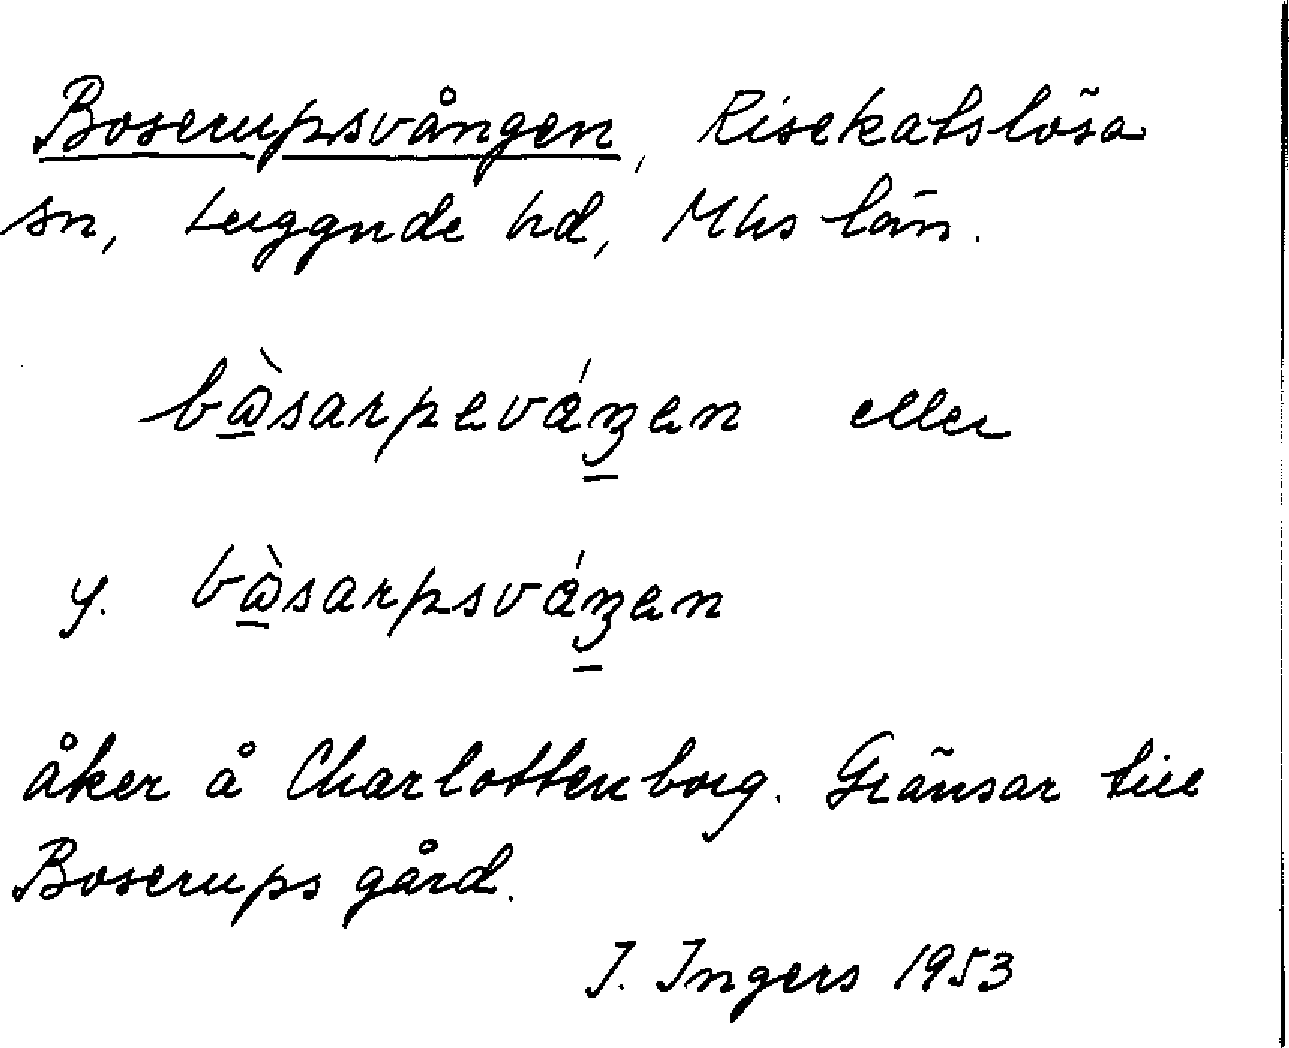 Boserupsvången, Risekatslösa
sn, Luggude hd, Mhs län.
bàsarpeváŋen eller
y. bàsarpsváŋen
åker å Charlottenborg. Gränsar till
Boserups gård.
I. Ingers 1953